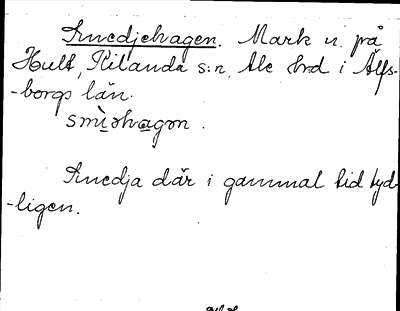 Smedjehagen. Mark n. på
Hult, Kilanda s:n, Ale hrd i Älfs-
-borgs län.
smìəhagən.
Smedja där i gammal tid tyd-
-ligen.